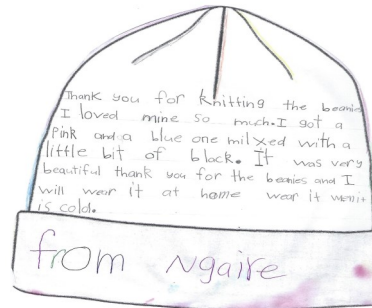 Thank you for knitting the beanies
I loved mine so much. I got a
pink and a blue one milxed with a
little bit of black. It was very
beautiful thank you for the beanies and I
will wear it at home wear it wen it
is cold.
from Ngaire